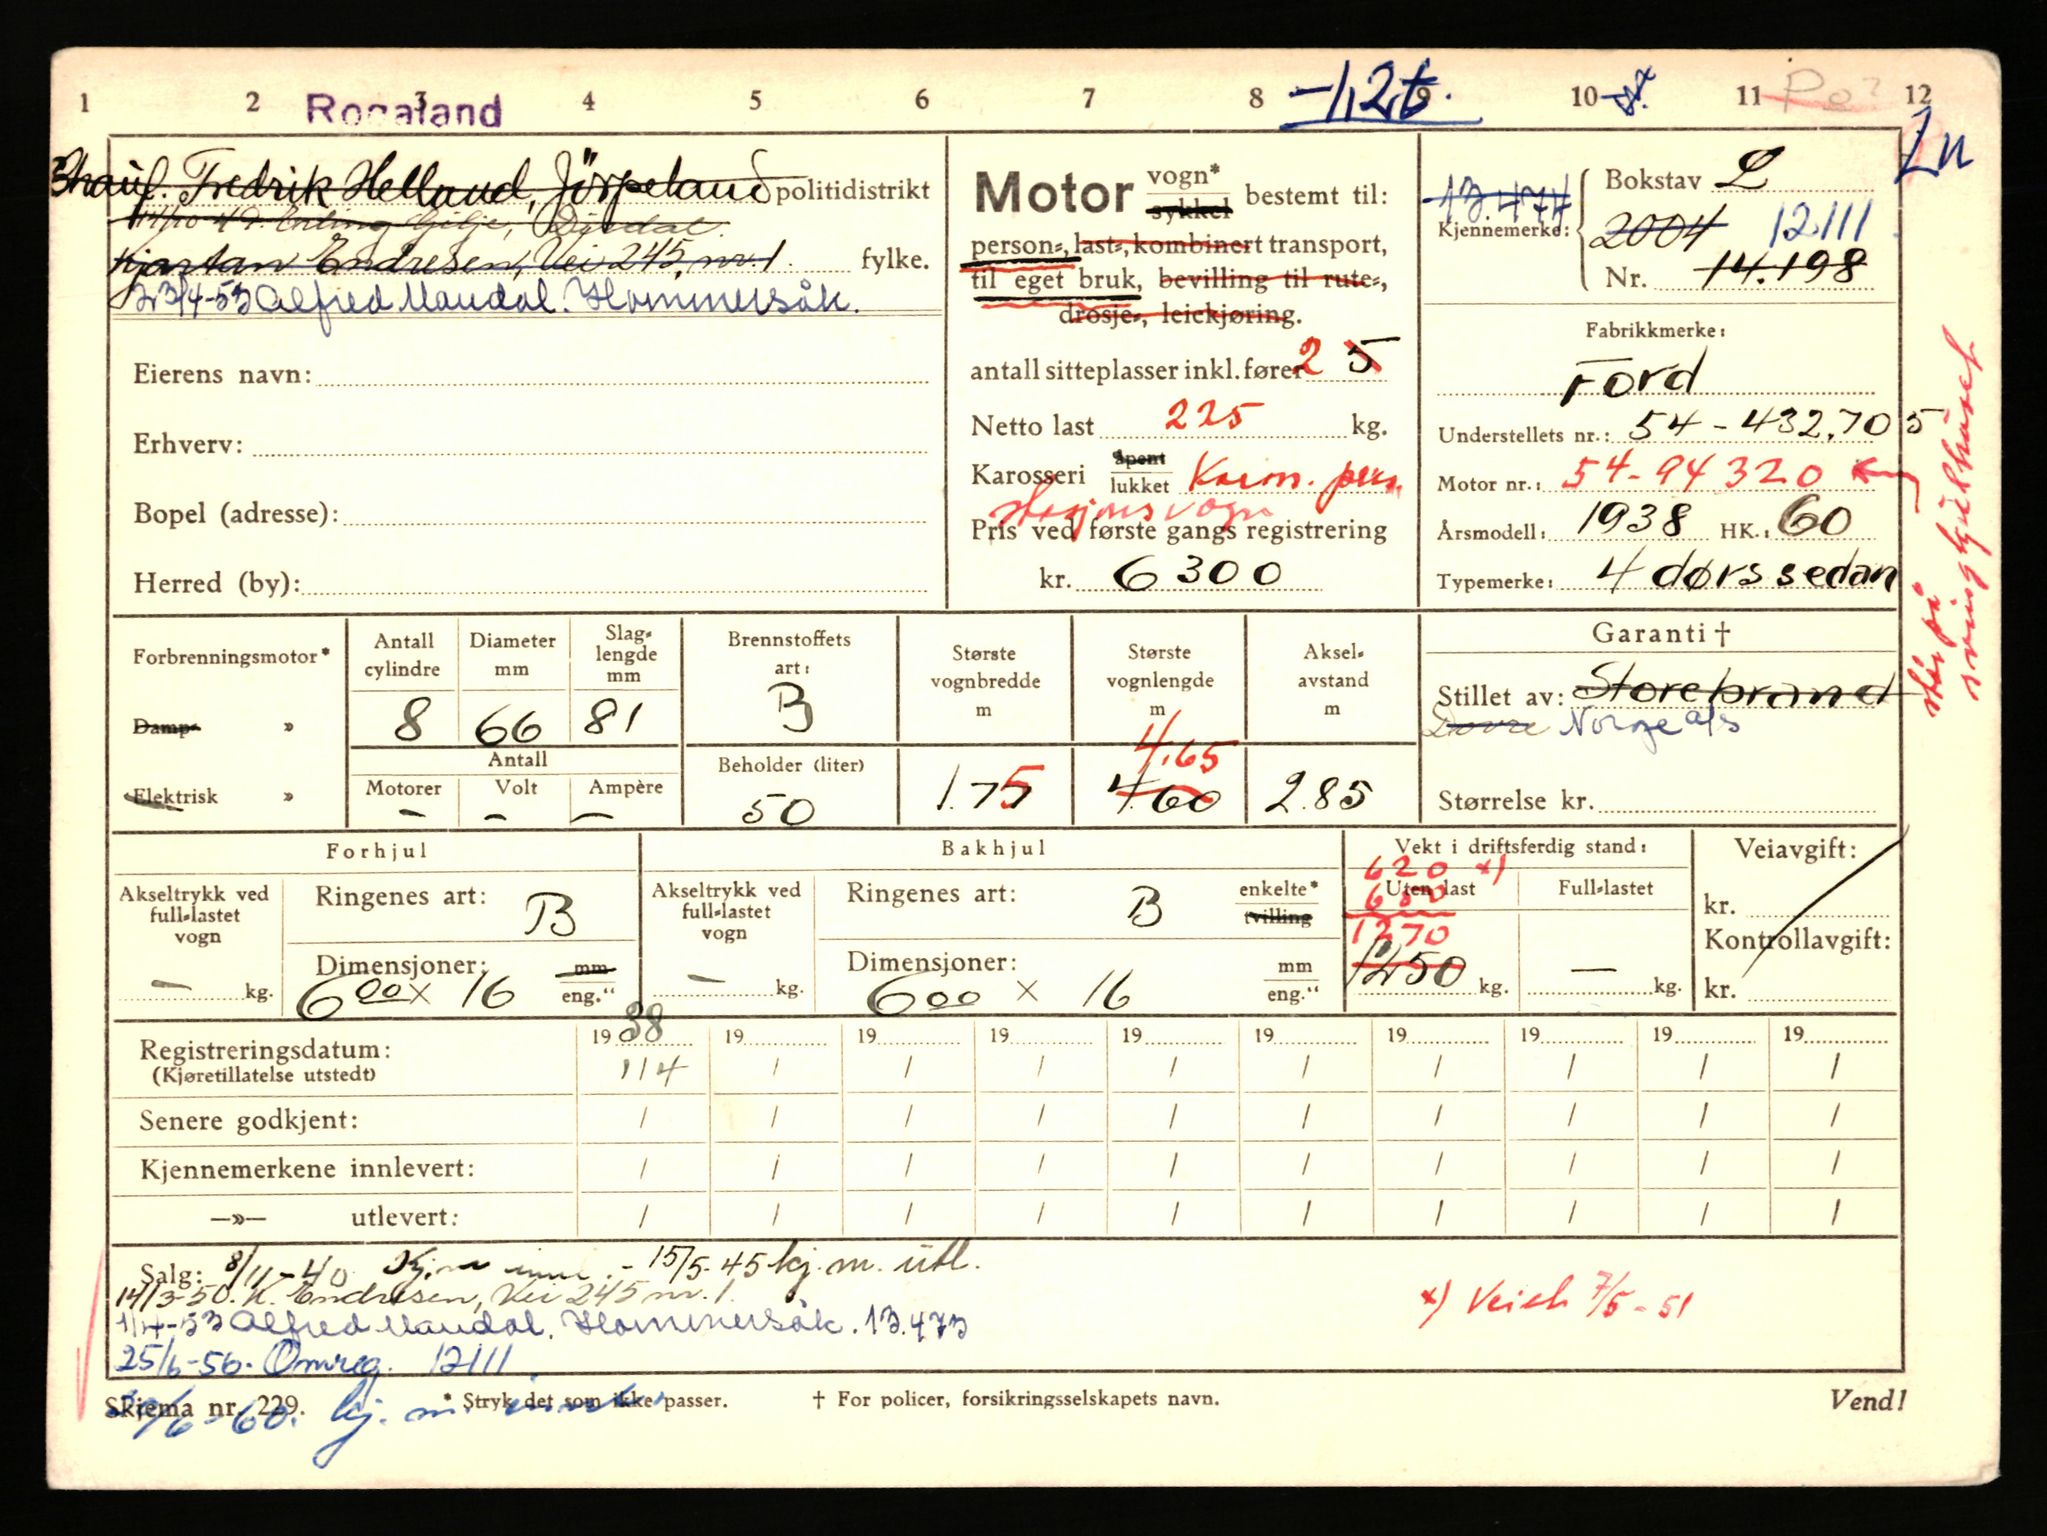 1 2 3 4 5 6 7 8 9 10 11 12
Rogaland
-1,2t.
Po?
Ln
Fredrik Helland, Jörpeland politidistrikt
14/10 47. Erling Gilje, Dirdal.
Kjartan Endresen, Vei 245, nr. 1. fylke.
Alfred Maudal. Hommersåk.
Eierens navn:
Erhverv:
Bopel (adresse):
Herred (by):
Motor vogn* sykkel bestemt til:
person-, last-, kombinert transport,
til eget bruk, bevilling til rute-,
drosje-, leiekjøring.
antall sitteplasser inkl. fører 2 5
Netto last 225 kg.
Karosseri åpent lukket Kom. pers.
stasjonsvogn
Pris ved første gangs registrering
kr. 6300
Bokstav L
13.474
Kjennemerke: 2004 12111
Nr. 14.198
Fabrikkmerke:
Ford
Understellets nr.: 54-432.705
Motor nr.: 54-94320
Årsmodell: 1938 HK.: 60
Typemerke: 4 dørs sedan
står på
svinghjulhuset
Forbrenningsmotor*
Damp- »
Elektrisk »
Antall cylindre
8
Diameter mm
66
Slag-lengde mm
81
Antall
Motorer Volt Ampère
- - -
Brennstoffets art:
B
Beholder (liter)
50
Største vognbredde m
1.75
Største vognlengde m
4.65
4.60
Aksel-avstand m
2.85
Garanti †
Stillet av: Storebrand
Dovre Norge a/s
Størrelse kr.
Forhjul
Akseltrykk ved full-lastet vogn
- kg.
Ringenes art: B
Dimensjoner: mm
6.00 x 16 eng."
Bakhjul
Akseltrykk ved full-lastet vogn
- kg.
Ringenes art: B enkelte* tvilling
Dimensjoner: mm
6.00 x 16 eng."
Vekt i driftsferdig stand:
620 x)
Uten last Full-lastet
1270
1250 kg. - kg.
Veiavgift:
kr.
Kontrollavgift:
kr.
Registreringsdatum: 1938 19 19 19 19 19 19 19 19 19
(Kjøretillatelse utstedt) 1/4 / / / / / / / / /
Senere godkjent: / / / / / / / / / /
Kjennemerkene innlevert: / / / / / / / / / /
—»— utlevert: / / / / / / / / / /
Salg: 8/11-40 Kj.m. inn. - 15/5-45 kj. m. utl.
14/3-50. K. Endresen, Vei 245 nr. 1.
1/4-53 Alfred Maudal. Hommersåk. 13.473
25/6-56. Omreg. 12111
x) Veieh 7/5-51
Skjema nr. 229. * Stryk det som ikke passer. † For policer, forsikringsselskapets navn. Vend!
/6-60. kj. m.